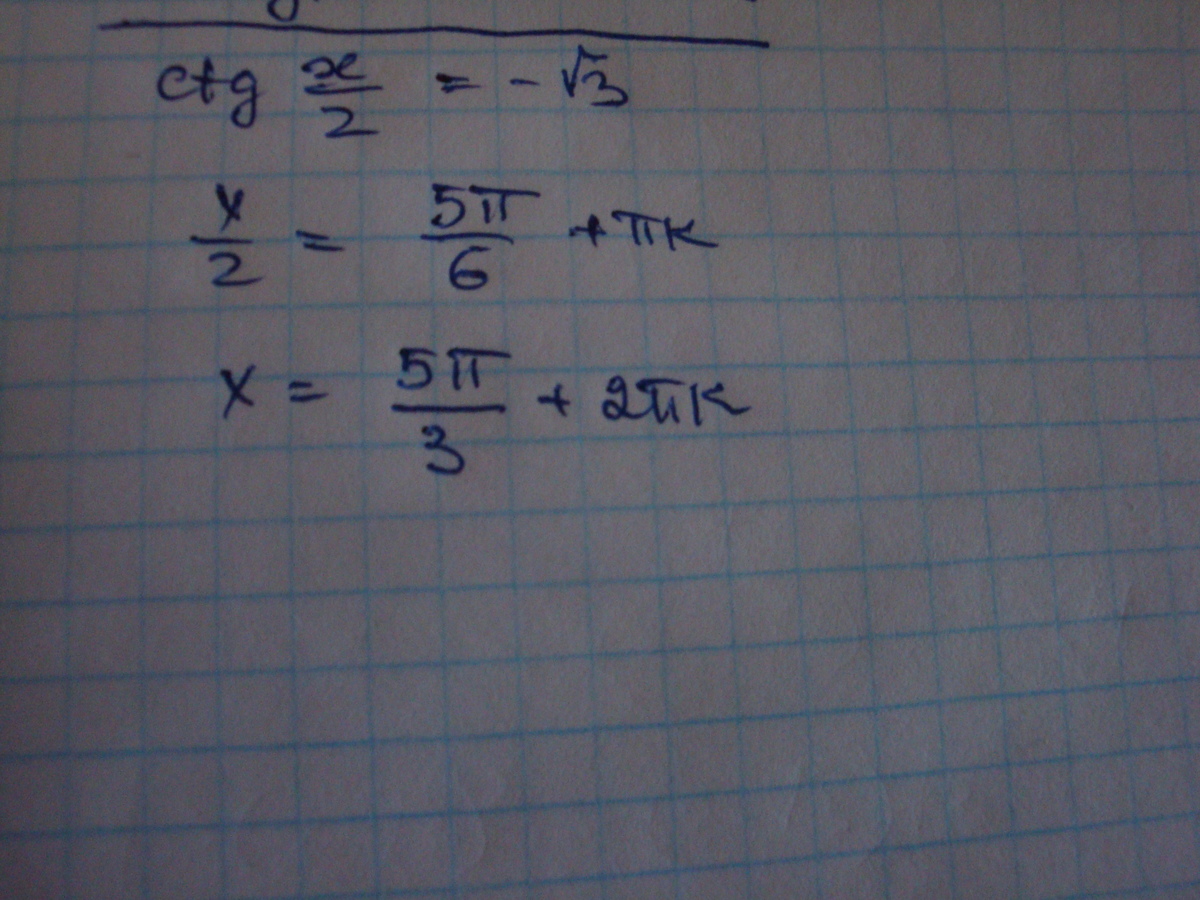 ctg x/2 = - √3
x/2 = 5π/6 + πk
x = 5π/3 + 2πk